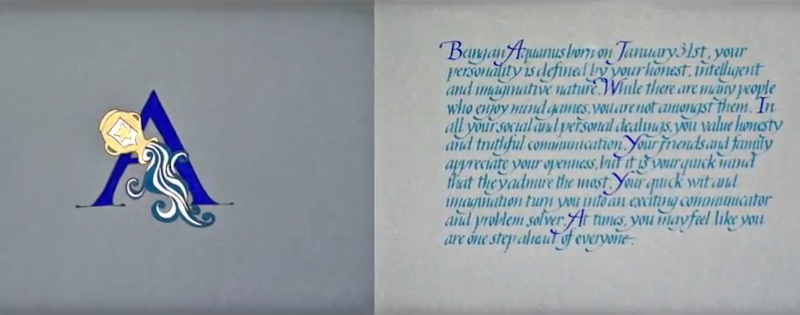 A
Being an Aquarius born on January 31st, your
personality is defined by your honest, intelligent
and imaginative nature. While there are many people
who enjoy mind games, you are not amongst them. In
all your social and personal dealings, you value honesty
and truthful communication. Your friends and family
appreciate your openness, but it is your quick mind
that they admire the most. Your quick wit and
imagination turn you into an exciting communicator
and problem solver. At times, you may feel like you
are one step ahead of everyone.